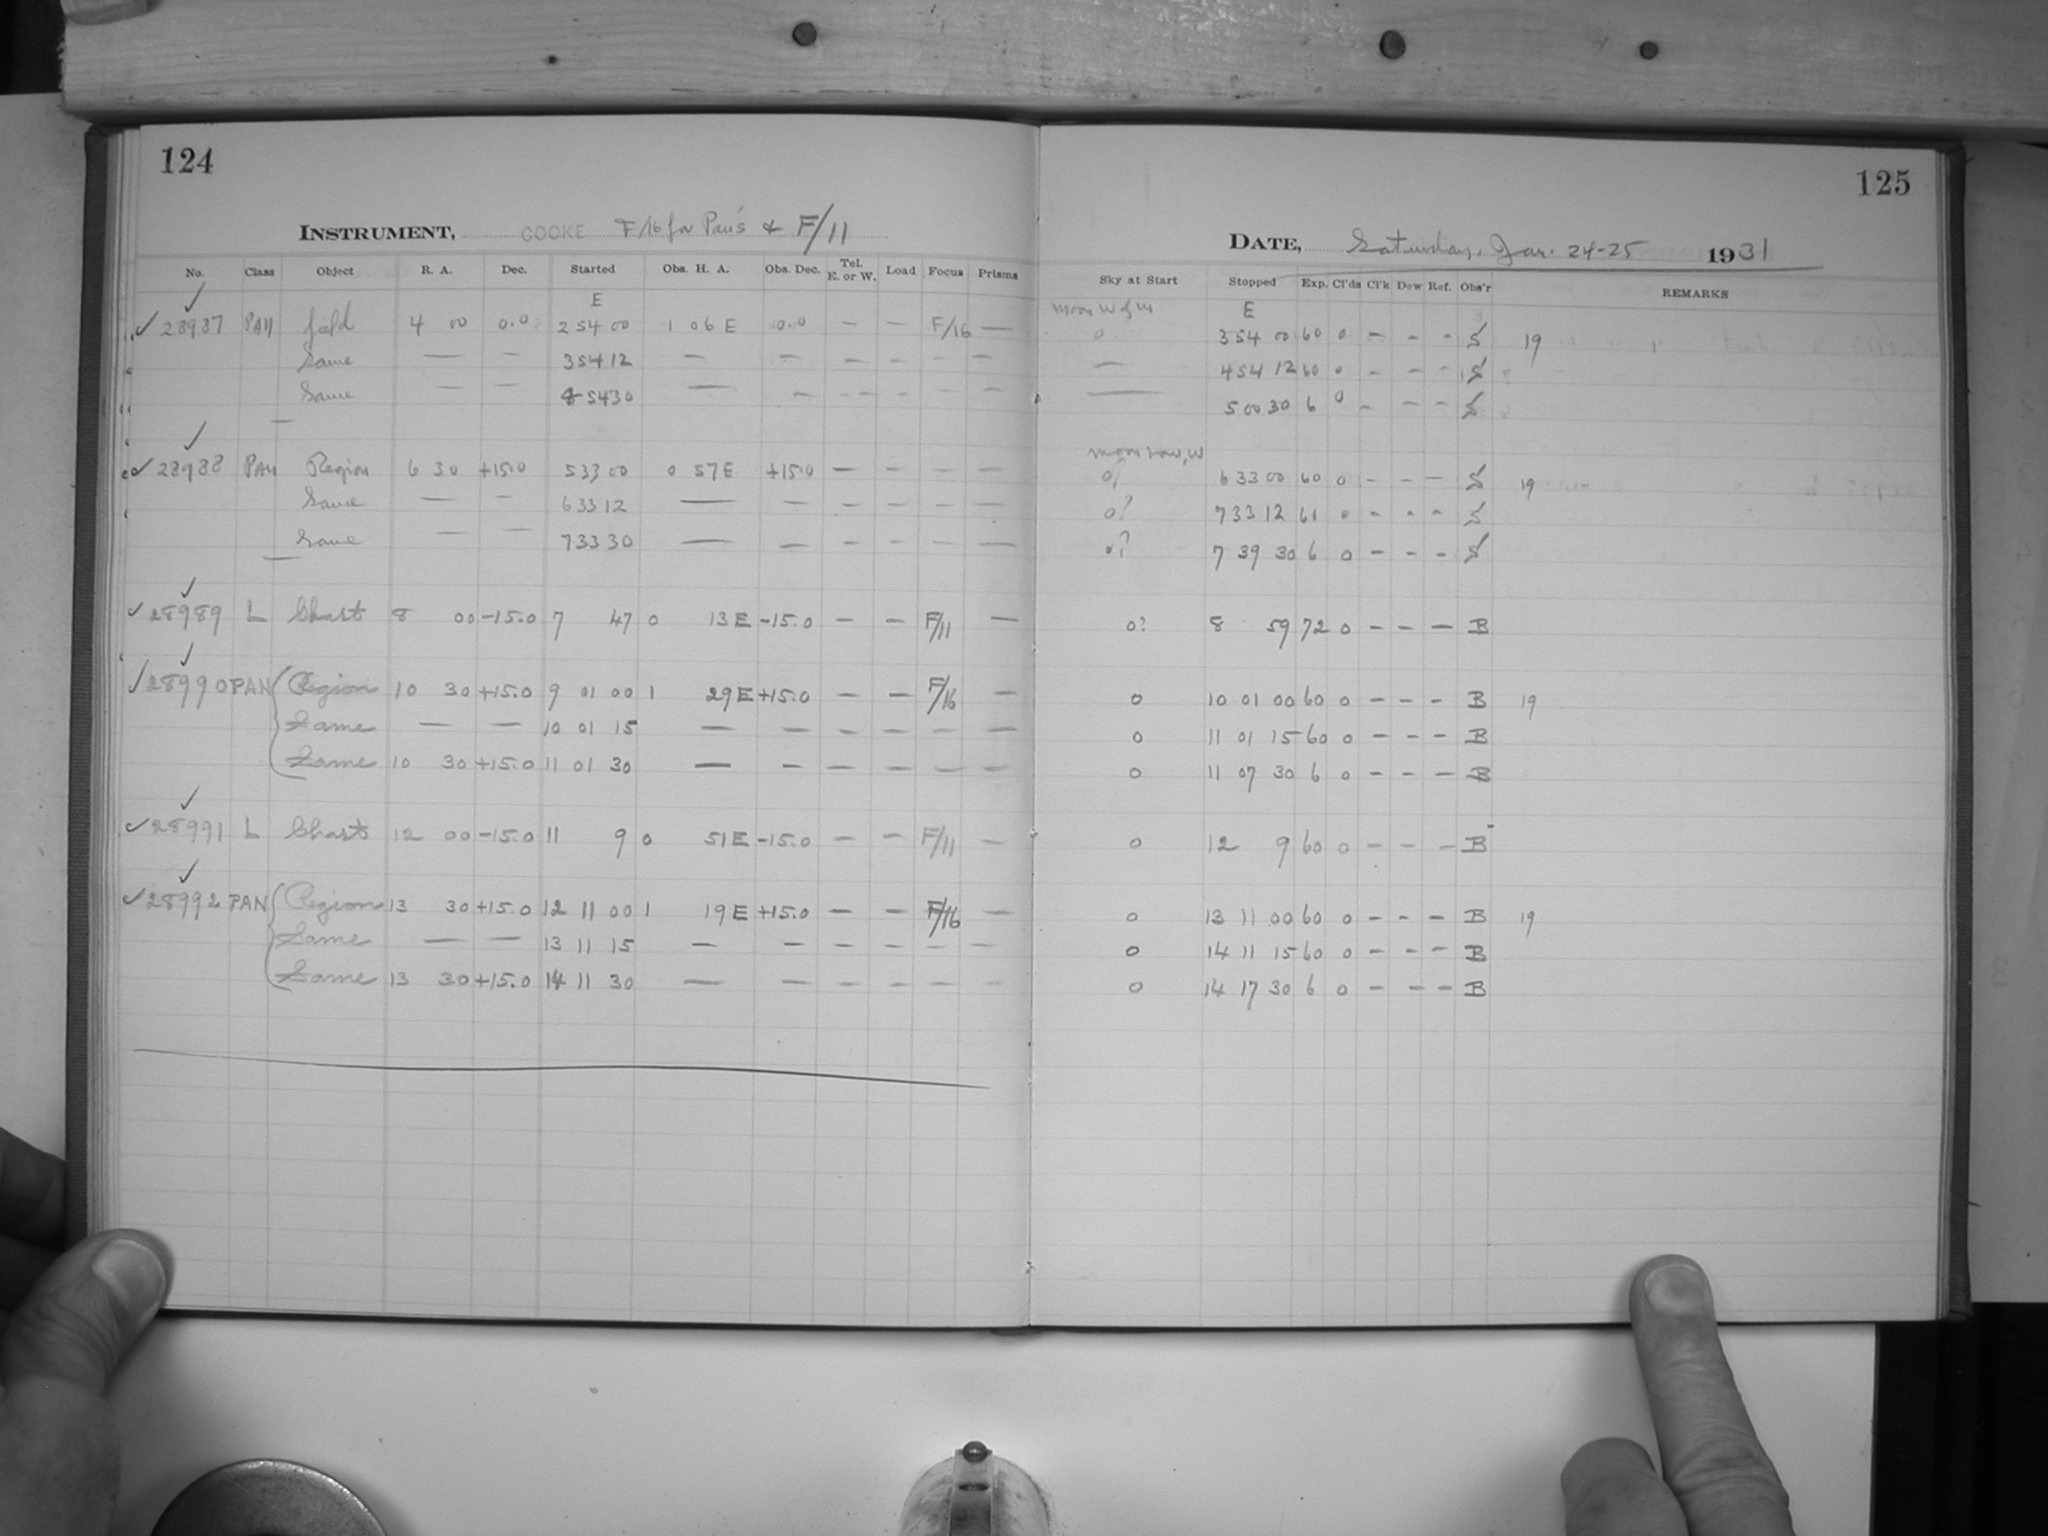 124
INSTRUMENT, COOKE F/16 for Pan's & F/11
No. Class Object R. A. Dec. Started Obs. H. A. Obs. Dec. Tel. E. or W. Load Focus Prisms
E
✓ 28987 PAN field 4 00 0.0 2 54 00 1 06 E 0.0 — — F/16 —
Same — — 3 54 12 — — — — — —
Same — — 4 54 30 — — — — — —
✓ 28988 PAN Region 6 30 +15.0 5 33 00 0 57 E +15.0 — — — —
Same — — 6 33 12 — — — — — —
Same — — 7 33 30 — — — — — —
✓ 28989 L Chart 8 00 -15.0 7 47 0 13 E -15.0 — — F/11 —
✓ 28990 PAN Region 10 30 +15.0 9 01 00 1 29 E +15.0 — — F/16 —
Same — — 10 01 15 — — — — — —
Same 10 30 +15.0 11 01 30 — — — — — —
✓ 28991 L Chart 12 00 -15.0 11 9 0 51 E -15.0 — — F/11 —
✓ 28992 PAN Region 13 30 +15.0 12 11 00 1 19 E +15.0 — — F/16 —
Same — — 13 11 15 — — — — — —
Same 13 30 +15.0 14 11 30 — — — — — —
125
DATE, Saturday, Jan. 24-25 1931
Sky at Start Stopped Exp. Cl'ds Cl'k Dew Ref. Obs'r REMARKS
moon W of m E
0 3 54 00 60 0 — — — S 19
— 4 54 12 60 0 — — — S
— 5 00 30 6 0 — — — S
moon low, W
0? 6 33 00 60 0 — — — S 19
0? 7 33 12 60 0 — — — S
0? 7 39 30 6 0 — — — S
0? 8 59 72 0 — — — B
0 10 01 00 60 0 — — — B 19
0 11 01 15 60 0 — — — B
0 11 07 30 6 0 — — — B
0 12 9 60 0 — — — B
0 13 11 00 60 0 — — — B 19
0 14 11 15 60 0 — — — B
0 14 17 30 6 0 — — — B